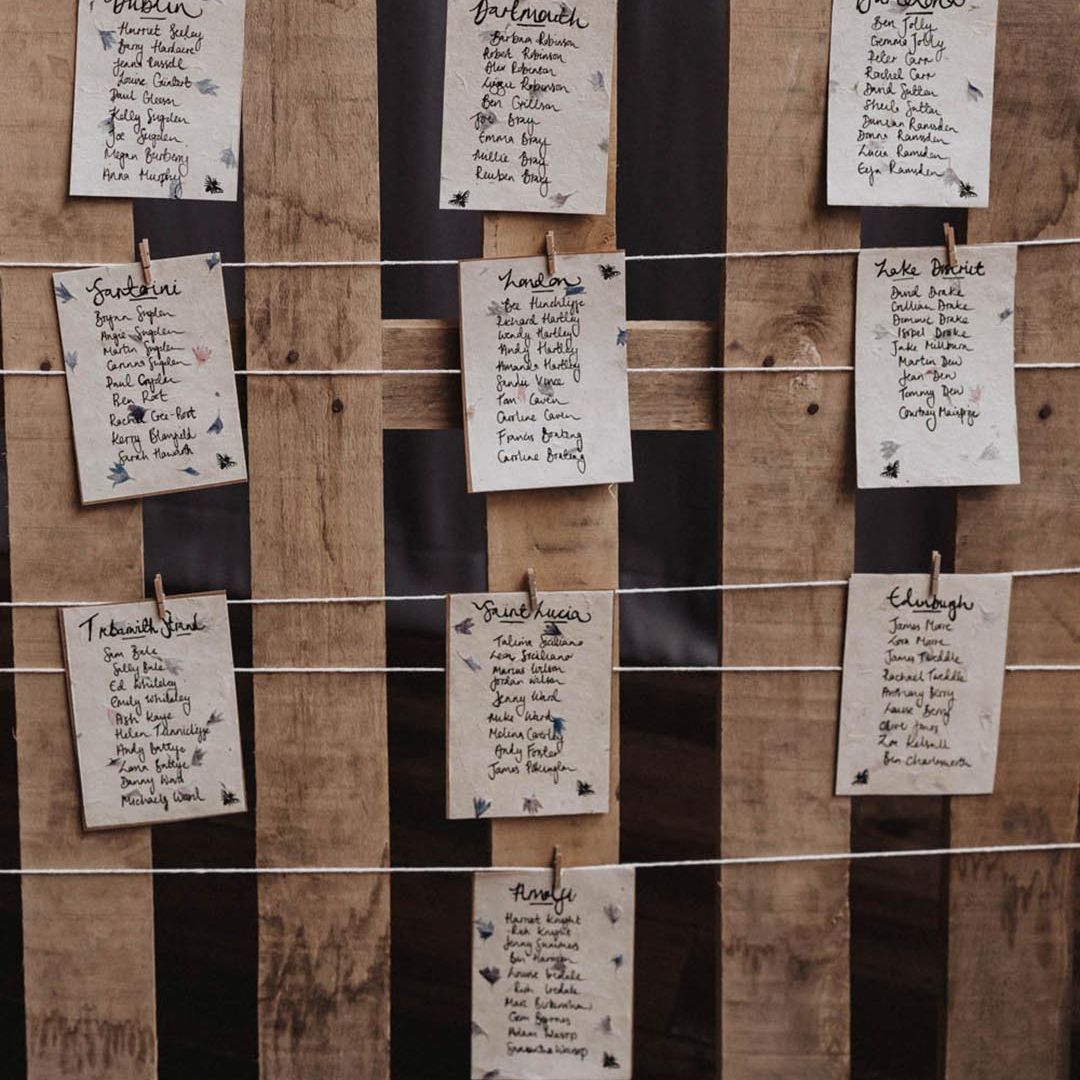 Dublin
Harriet Seeley
Barry Hardacre
Jenna Russell
Louise
Paul Gleeson
Kelly Sugden
Joe Sugden
Megan Burberry
Anna Murphy
Dartmouth
Barbara Robinson
Robert Robinson
Alix Robinson
Lizzie Robinson
Ben Grillson
Joe Bray
Emma Bray
Millie Bray
Reuben Bray
Barcelona
Ben Jolly
Gemma Jolly
Peter Carr
Rachel Carr
David Sutton
Sheila Sutton
Duncan Ramsden
Donna Ramsden
Lucia Ramsden
Ramsden
Santorini
Brynn Sugden
Angie Sugden
Martin Sugden
Corinna Sugden
Paul
Ben Root
Rachel Gee-Root
Kerry Blamfeld
Sarah Haworth
London
Bee Hinchliffe
Richard Hartley
Wendy Hartley
Andy Hartley
Amanda Hartley
Sandie Vence
Tom Caven
Caroline Caven
Francis Boateng
Caroline Boateng
Lake District
David Drake
Gillian Drake
Dominic Drake
Isobel Drake
Jake Millburn
Martin Dew
Jean Dew
Tommy Dew
Courtney
Trebarwith Strand
Sam Bale
Sally Bale
Ed Whiteley
Emily Whiteley
Ash Kaye
Helen Tunnicliffe
Andy Battye
Lana Battye
Danny Ward
Michaela Ward
Saint Lucia
Talima Siciliano
Leon Siciliano
Marcus Wilson
Jordan Wilson
Jenny Ward
Mike Ward
Melina
Andy Foster
James
Edinburgh
James Moore
Zora Moore
James Tweddle
Rachael Tweddle
Anthony Berry
Louise Berry
Clive Jones
Zoe Kelsall
Ben Charlesworth
Amalfi
Harriet Knight
Rich Knight
Jenny Summers
Ben Harrison
Louise Iredale
Rich Iredale
Marc
Gem Barnes
Adam Wasop
Samantha Wasop